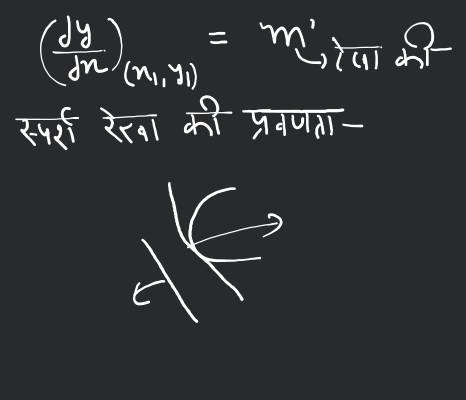 (dy/dx)(x₁, y₁) = m' → रेखा की
स्पर्श रेखा की प्रवणता –